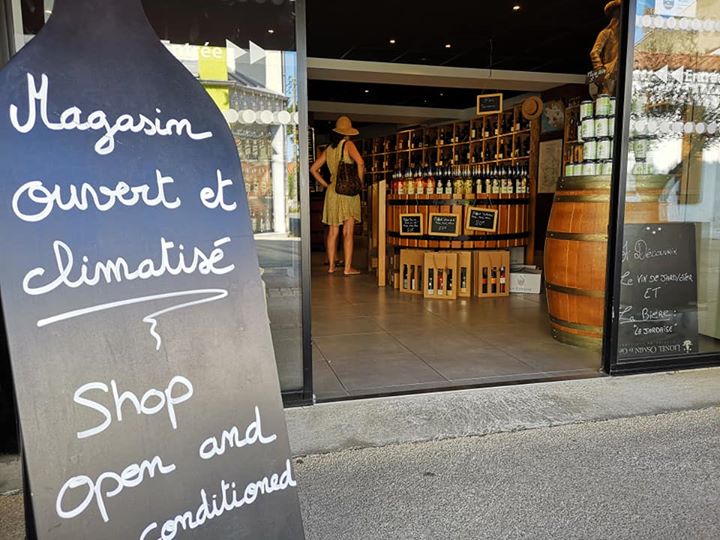 Magasin
ouvert et
climatisé
Shop
open and
conditioned
Entrée
Entr
A Découvrir
Le VIN DE JARD/MER
ET
La Bière :
"LA JARDAISE"
LIONEL OSMIN & Cie